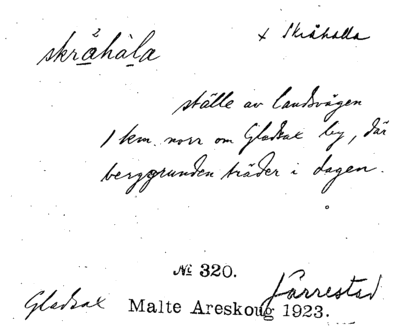 skråhåla
x Skråhalla
ställe av landsvägen
1 km. norr om Gladsax by, där
berggrunden träder i dagen.
№ 320.
Järrestad
Gladsax Malte Areskoug 1923.